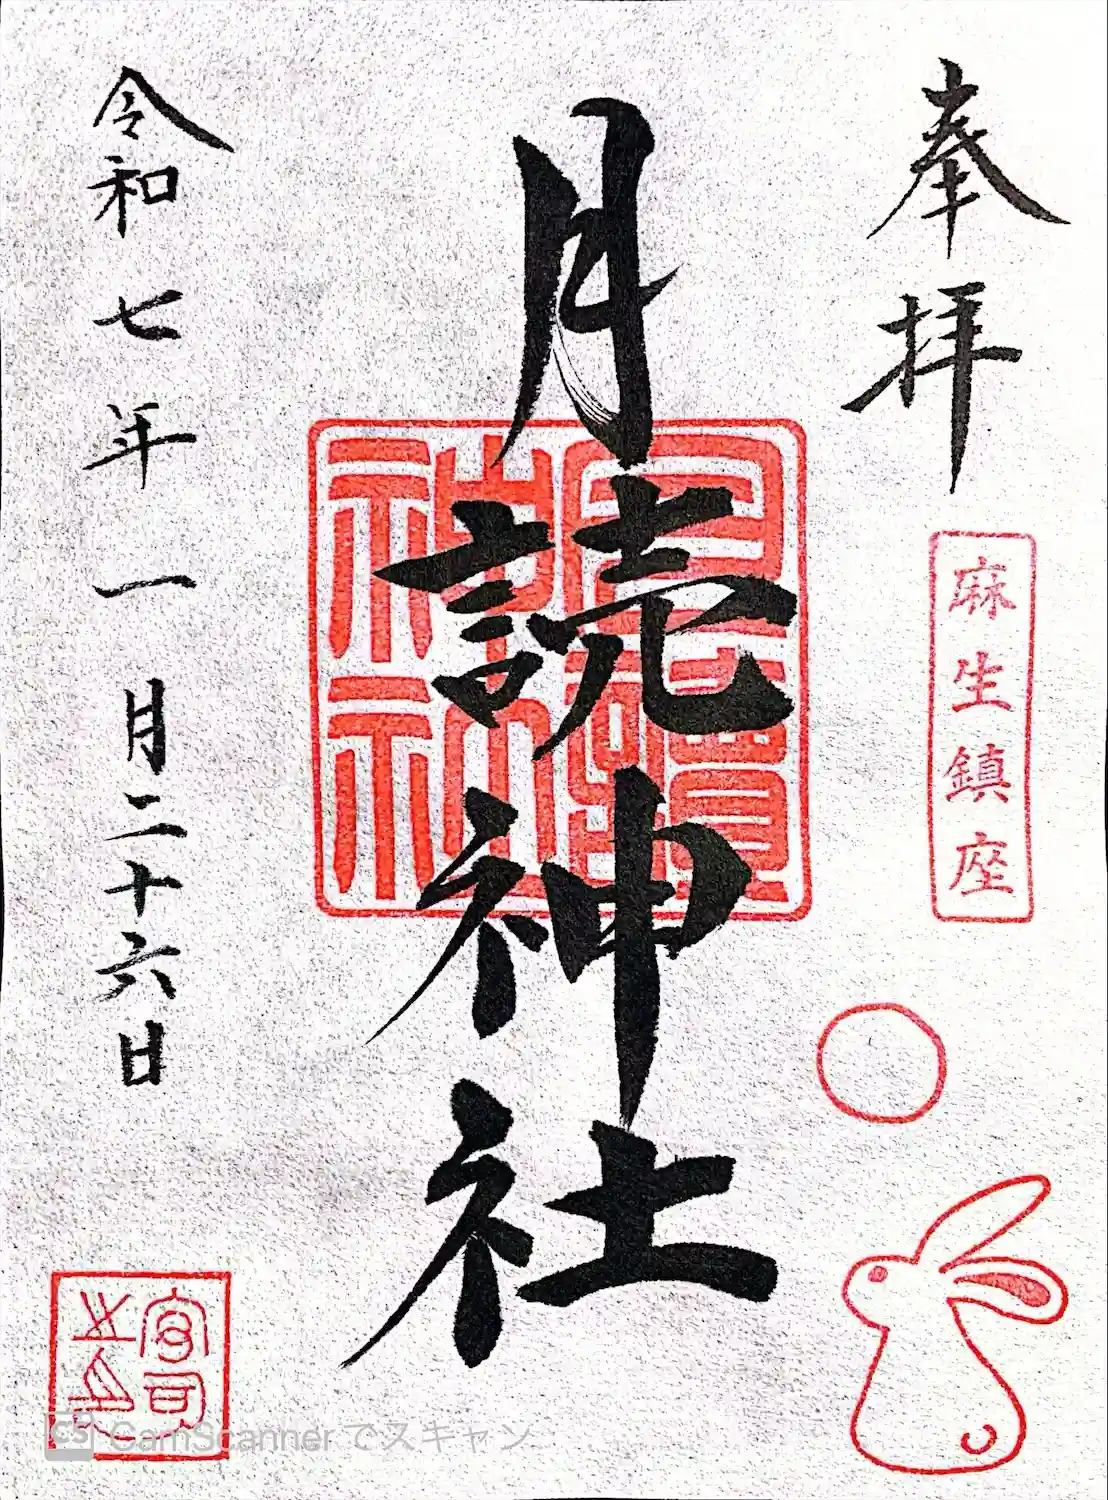 奉拝
麻生鎮座
月読神社
月讀神社
令和七年一月二十六日
宮司之印
CS CamScanner でスキャン